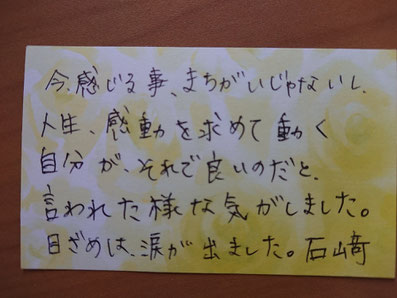 今、感じる事、まちがいじゃないし、
人生、感動を求めて動く
自分が、それで良いのだと、
言われた様な気がしました。
目ざめは、涙が出ました。石山奇